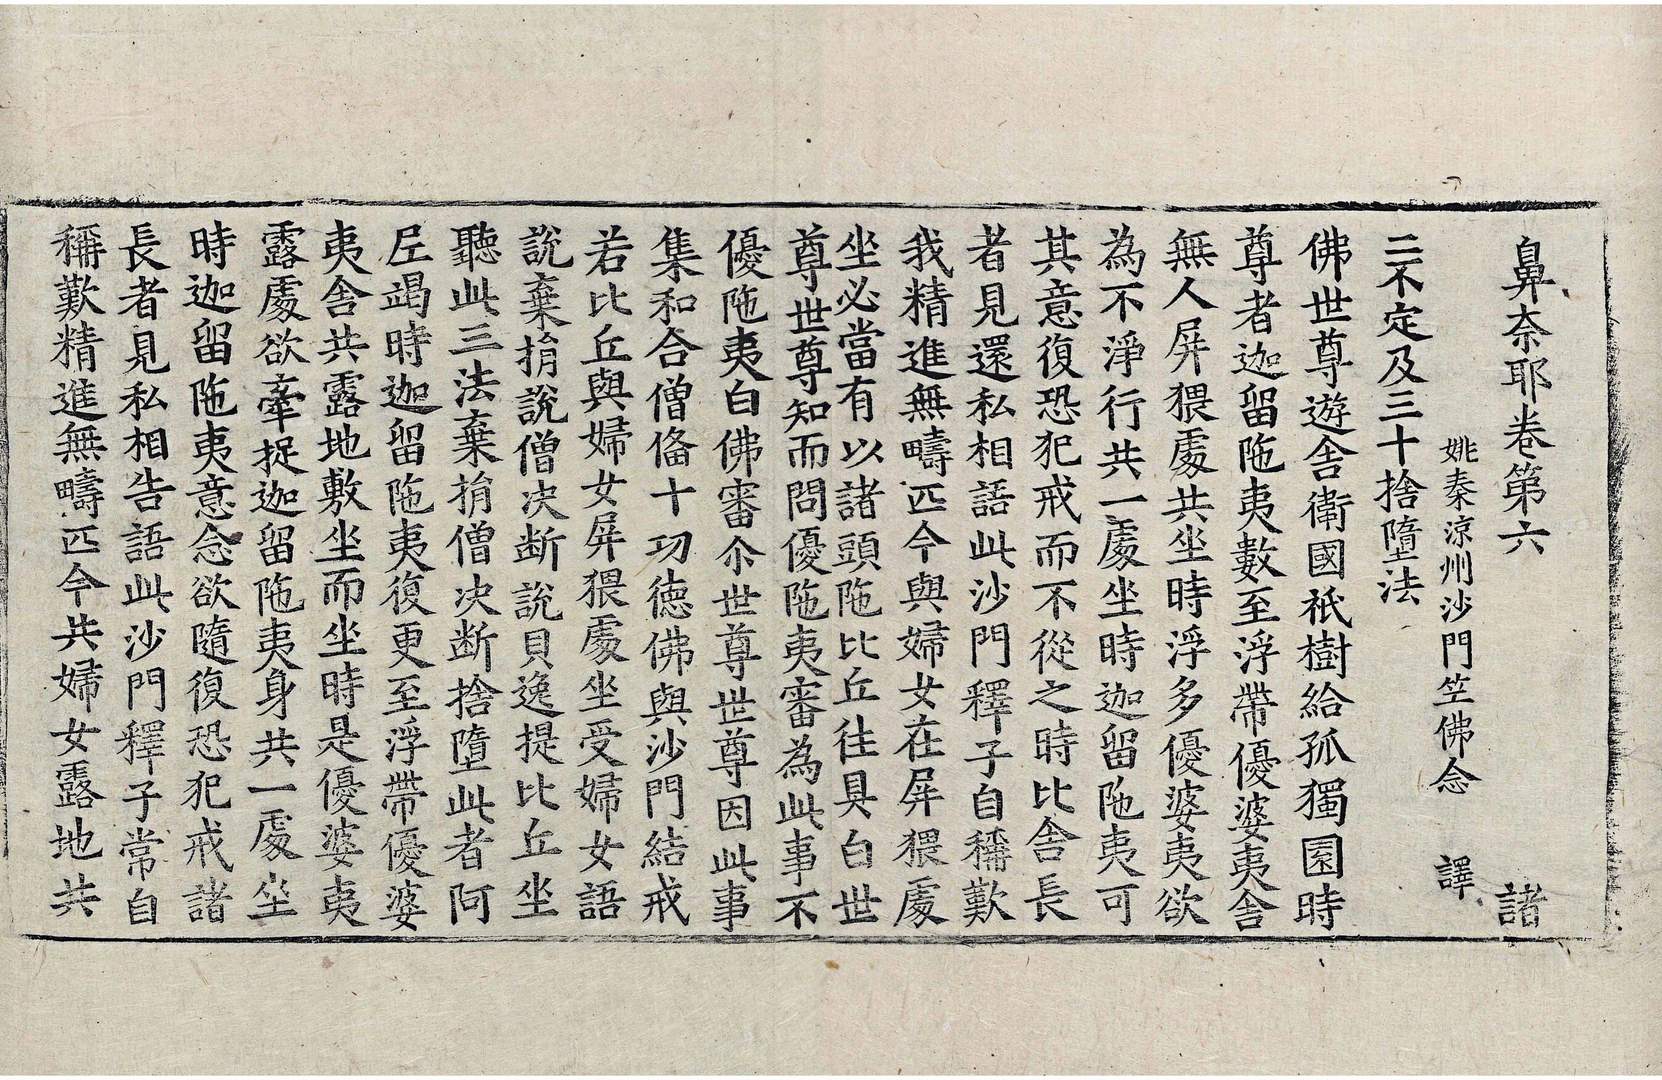 鼻奈耶卷第六　諸
姚秦涼州沙門竺佛念　譯
二不定及三十捨墮法
佛世尊遊舍衛國祇樹給孤獨園時
尊者迦留陁夷數至浮帶優婆夷舍
無人屏猥處共坐時浮多優婆夷欲
為不淨行共一處坐時迦留陁夷可
其意復恐犯戒而不從之時比舍長
者見還私相語此沙門釋子自稱歎
我精進無疇匹今與婦女在屏猥處
坐必當有以諸頭陁比丘往具白世
尊世尊知而問優陁夷審為此事不
優陁夷白佛審尒世尊世尊因此事
集和合僧俻十功德佛與沙門結戒
若比丘與婦女屏猥處坐受婦女語
說棄捐說僧决断說貝逸提比丘坐
聽此三法棄捐僧决断捨墮此者阿
𡰱竭時迦留陁夷復更至浮帶優婆
夷舍共露地敷坐而坐時是優婆夷
露處欲牽捉迦留陁夷身共一處坐
時迦留陁夷意念欲隨復恐犯戒諸
長者見私相告語此沙門釋子常自
稱歎精進無疇匹今共婦女露地共